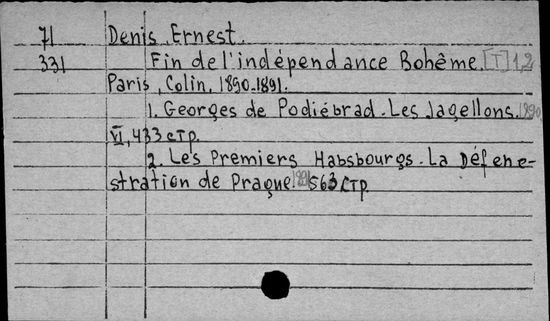 71 Denis, Ernest.
331 Fin de l'indépendance Bohême. [T] 1,2
Paris, Colin, 1890-1891.
1. Georges de Podiébrad. Les Jagellons. 1890
VI, 433 стр.
2. Les Premiers Habsbourgs. La Défene-
stration de Prague. 1891 563 стр.